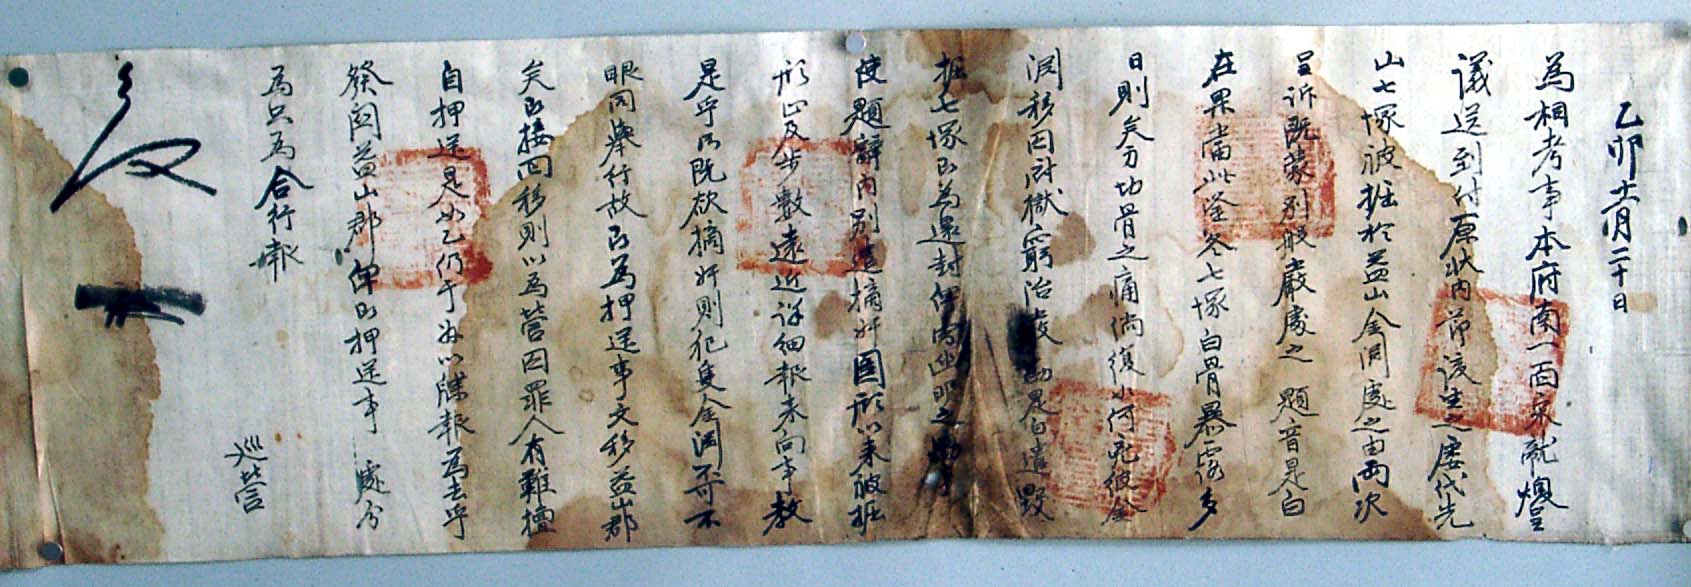 乙卯十一月二十日
爲相考事本府南一面宋胤煥呈
議送到付原狀內節該生之屢代先
山七塚被掘於益山金洞處之由兩次
呈訴旣蒙別般嚴處之 題音是白
在果當此隆冬七塚白骨暴露多
日則矣身切骨之痛倘復如何
洞移囚獄窮治後 是白遣毀
掘七塚以爲還封俾 幽明之
使題辭內別遣摘奸圖形以來被掘
形止及步數遠近詳細報來向事教
是乎所旣欲摘奸則犯隻金洞不可不
眼同擧行故以爲押送事文移益山郡
矣所接回移則以爲營囚罪人有難擅
自押送是如乙仍于玆以牒報爲去乎
發關益山郡俾以押送事 處分
爲只爲合行報
巡營